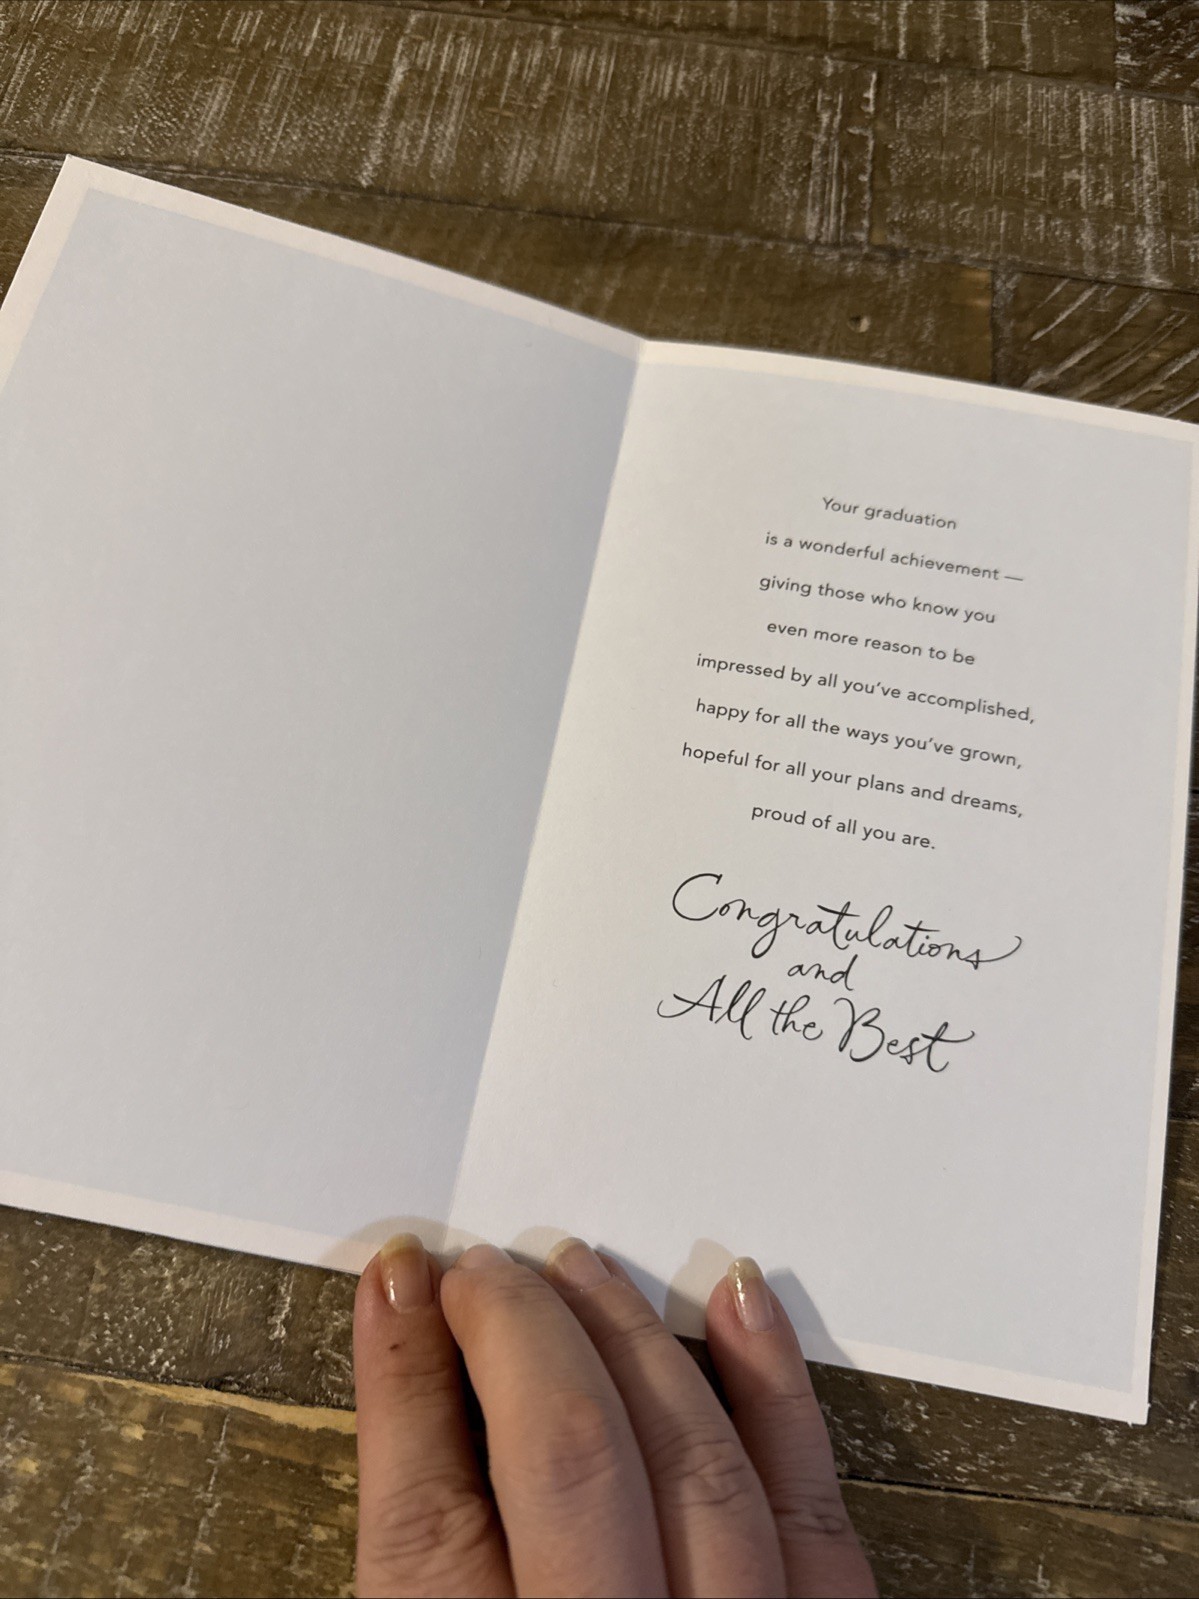 Your graduation
is a wonderful achievement —
giving those who know you
even more reason to be
impressed by all you've accomplished,
happy for all the ways you've grown,
hopeful for all your plans and dreams,
proud of all you are.
Congratulations
and
All the Best